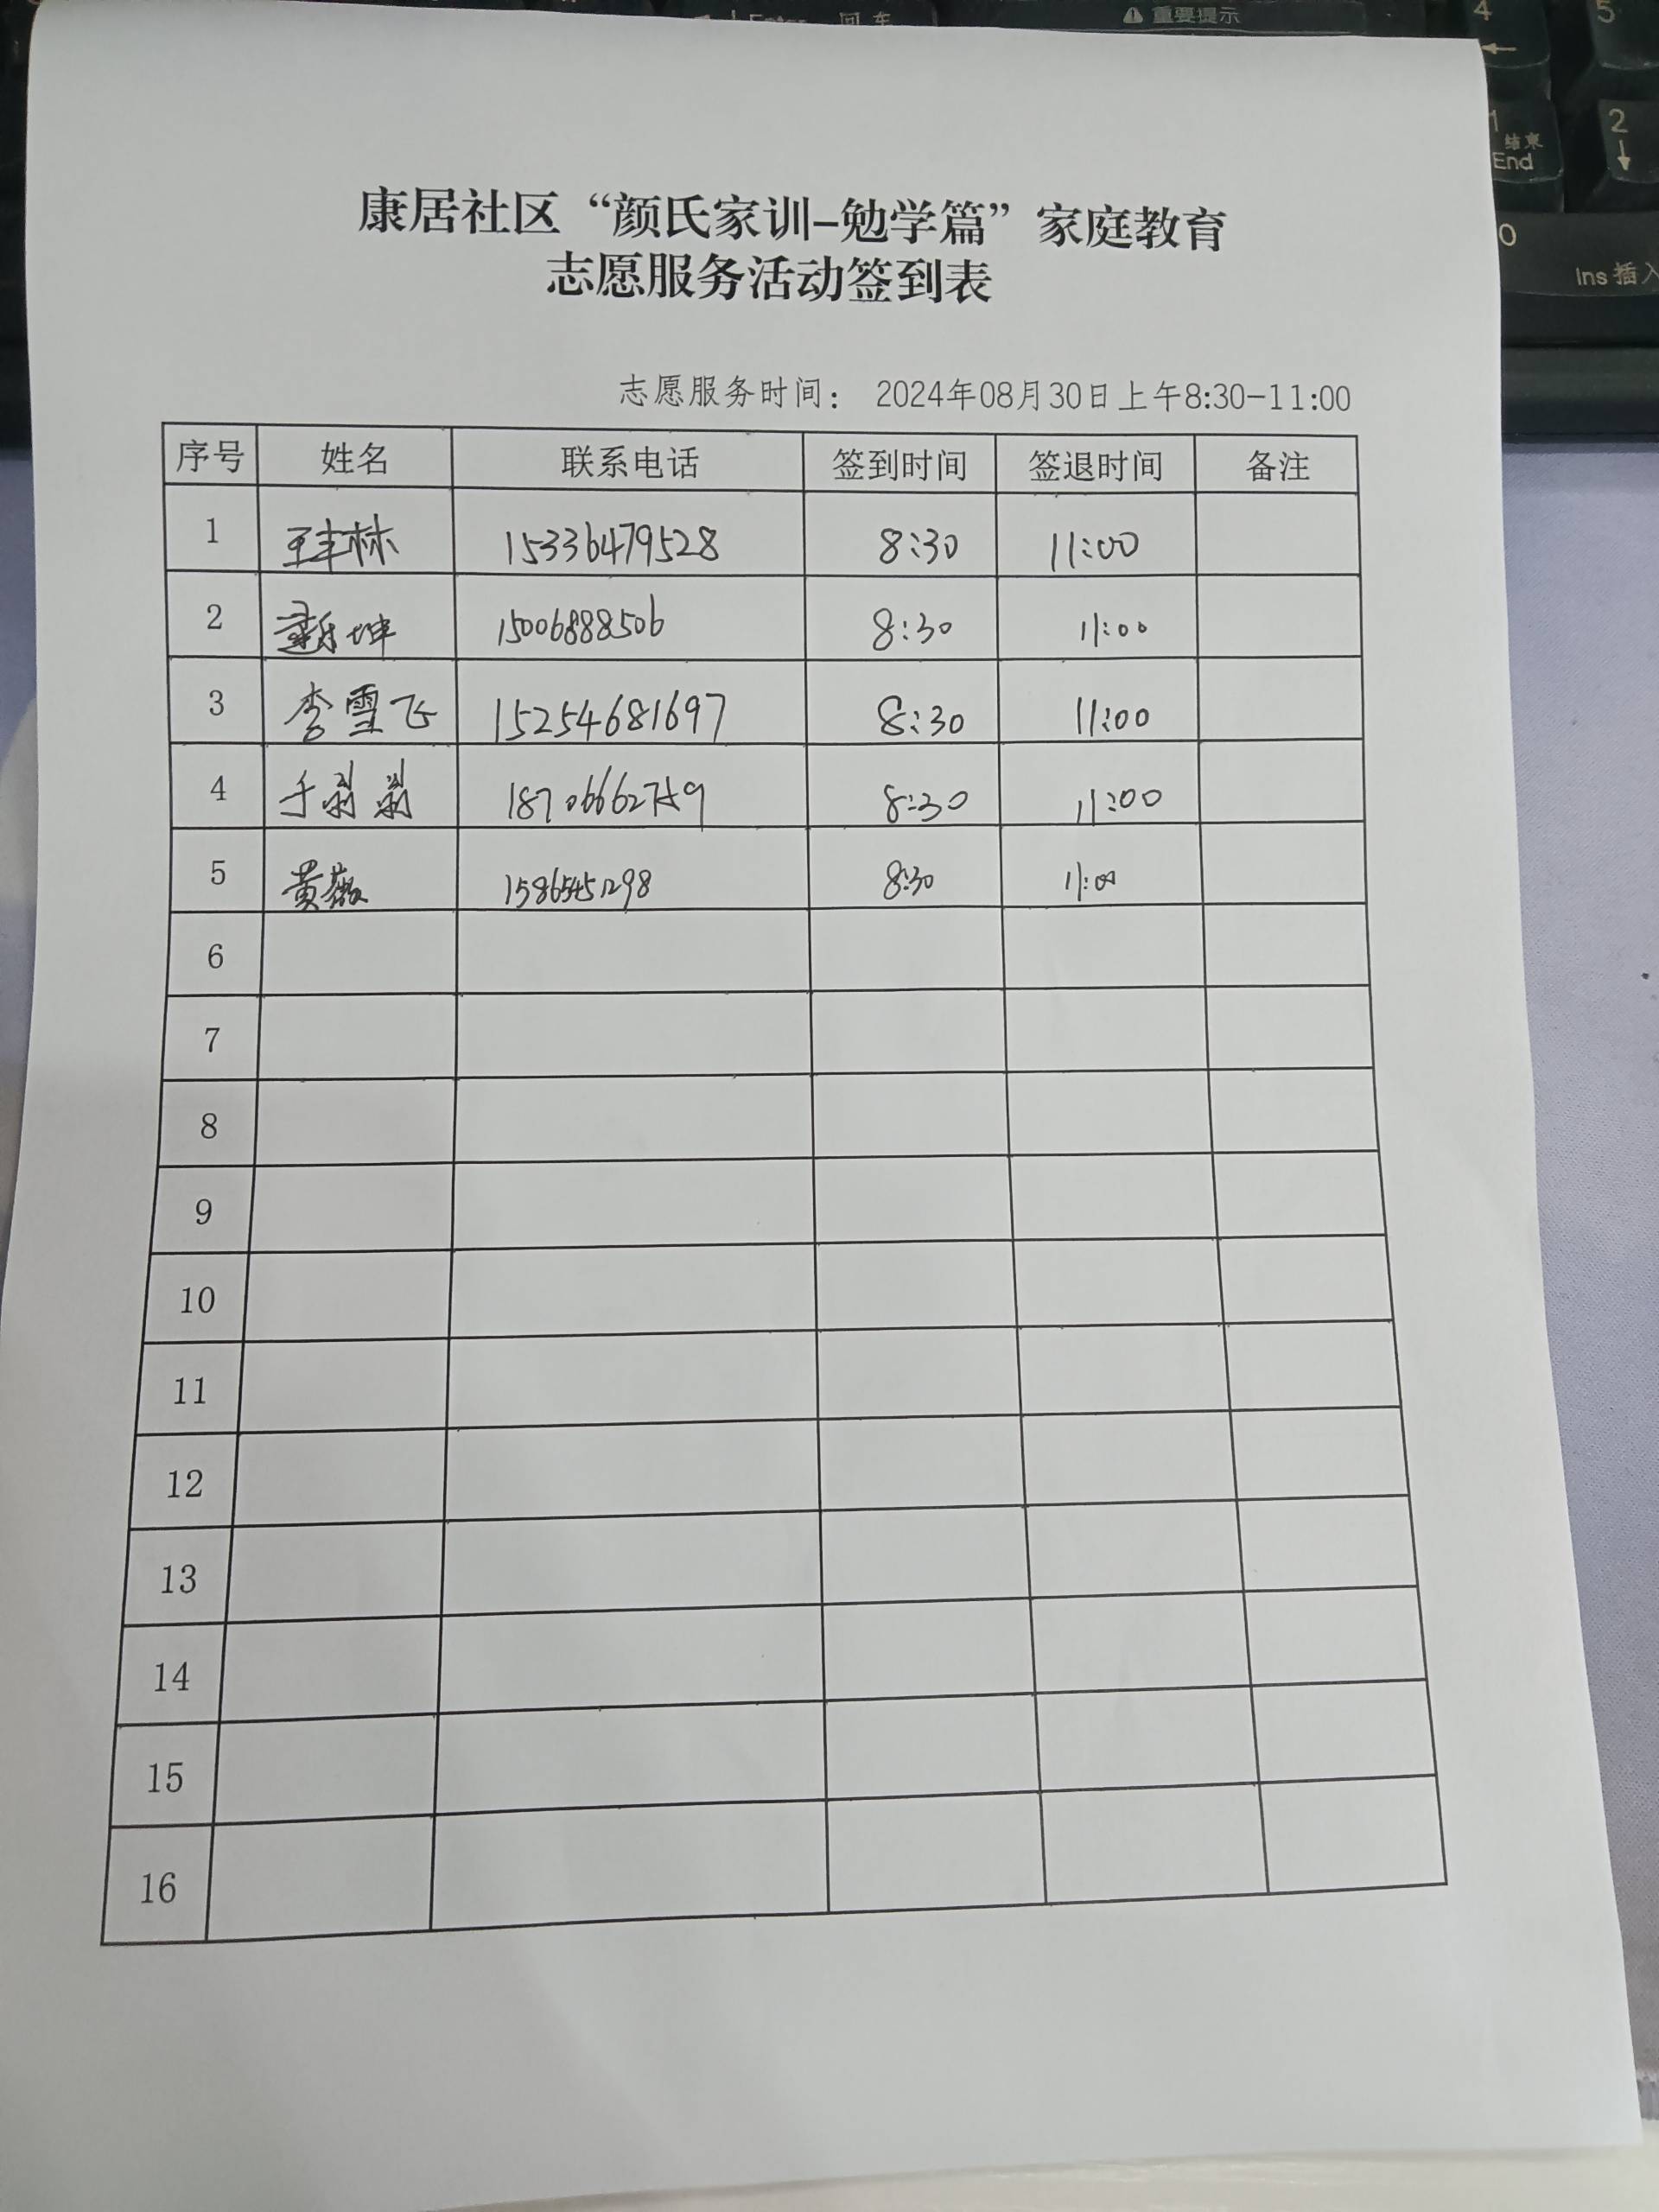 重要提示
Enter 回车
4
5
1 结束
End
2
0
Ins 插入
康居社区“颜氏家训-勉学篇”家庭教育
志愿服务活动签到表
志愿服务时间： 2024年08月30日上午8:30-11:00
序号 姓名 联系电话 签到时间 签退时间 备注
1 王丰林 15336479528 8:30 11:00
2 坤 15006888506 8:30 11:00
3 李雪飞 15254681697 8:30 11:00
4 于翁翁 18706662759 8:30 11:00
5 黄薇 15865451298 8:30 11:00
6
7
8
9
10
11
12
13
14
15
16